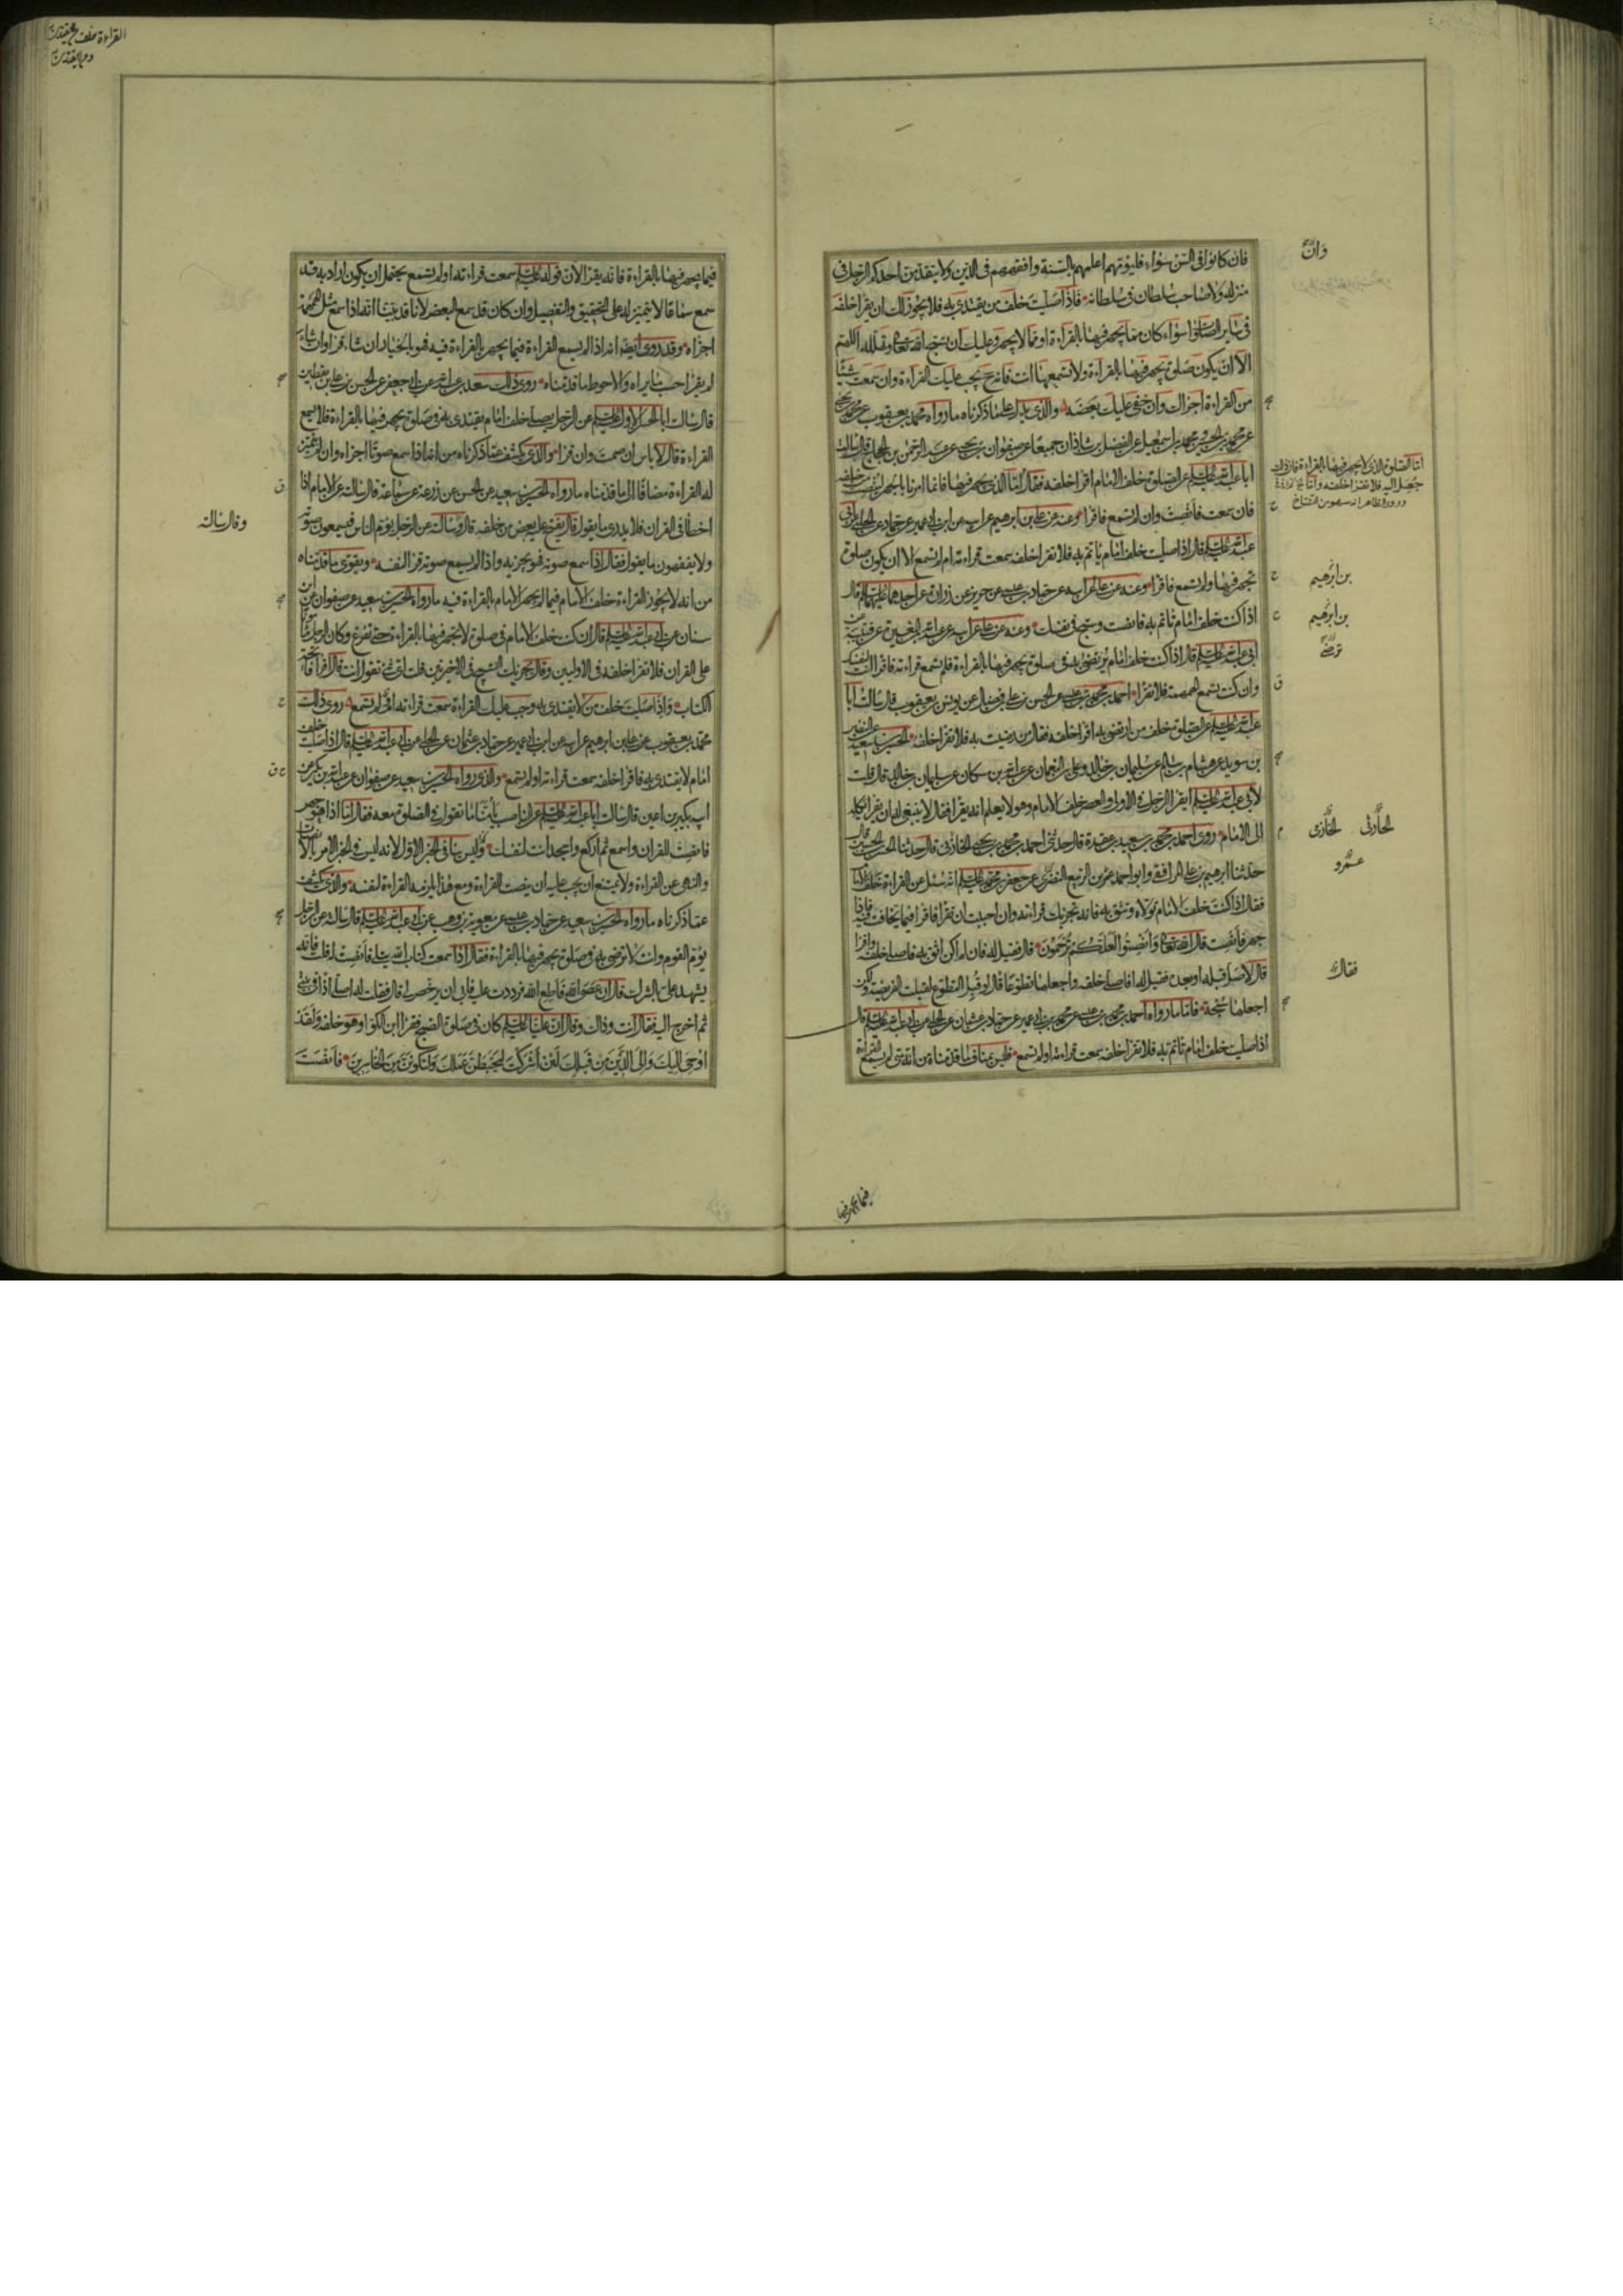 فان كانوا فى السن سواء فليؤمهم اعلمهم بالسنة وافقههم فى الدين ولا يتقدمن احدكم الرجل فى
منزله ولا صاحب سلطان فى سلطانه فاذا صليت خلف من يقتدى به فلا يجوز لك ان يقرا خلفه
فى ساير الصلوات سواء كان مما يجهر فيها بالقراءة او مما لا يجهر وعليك ان تسبح الله تعالى وتهلله اللهم
الا ان يكون صلوة يجهر فيها بالقراءة ولا تسمعها انت فانه ح يجب عليك القراءة وان سمعت شيئا
من القراءة اجزاك وان خفى عليك بعضه والذى يدل على ما ذكرناه ما رواه محمد بن يعقوب عن محمد بن يحيى
عن محمد بن الحسين ومحمد بن اسمعيل عن الفضل بن شاذان جميعا عن صفوان بن يحيى عن عبد الرحمن بن الحجاج قال سالت
ابا عبد الله عليه السلم عن الصلوة خلف الامام اقرا خلفه فقال اما الذى يجهر فيها فانما امرنا بالجهر لينصت من خلفه
فان سمعت فانصت وان لم تسمع فاقرا وعنه عن على بن ابراهيم عن ابيه عن ابن ابى عمير عن حماد عن الحلبى عن ابى
عبد الله عليه السلم قال اذا صليت خلف امام تاتم به فلا تقرا خلفه سمعت قراءته ام لم تسمع الا ان يكون صلوة
تجهر فيها ولم تسمع فاقرا وعنه عن على عن ابيه عن حماد بن عيسى عن حريز عن زرارة عن احدهما عليهما السلم قال
اذا كنت خلف امام تاتم به فانصت وسبح فى نفسك وعنه عن على عن ابيه عن عبد الله بن المغيرة عن قتيبة عن
ابى عبد الله عليه السلم قال اذا كنت خلف امام ترتضى به فى صلوة يجهر فيها بالقراءة فلم تسمع قراءته فاقرا انت لنفسك
وان كنت تسمع الهمهمة فلا تقرا احمد بن محمد بن عيسى عن الحسن بن على بن فضال عن يونس بن يعقوب قال سالت ابا
عبد الله عليه السلم عن الصلوة خلف من ارتضى به اقرا خلفه فقال من رضيت به فلا تقرا خلفه الحسين بن سعيد عن النضر
بن سويد عن هشام بن سالم عن سليمان بن خالد وعلى بن النعمان عن عبد الله بن مسكان عن سليمان بن خالد قال قلت
لابى عبد الله عليه السلم ايقرا الرجل فى الاولى والعصر خلف الامام وهو لا يعلم انه يقرا فقال لا ينبغى له ان يقرا يكله
الى الامام روى احمد بن محمد بن سعيد بن عقدة قال حدثنى احمد بن محمد بن يحيى الخازنى قال حدثنا الحسن بن الحسين قال
حدثنا ابرهيم بن على المرافقى وابو احمد عمر بن الربيع النصرى عن جعفر بن محمد عليه السلم انه سئل عن القراءة خلف الامام
فقال اذا كنت خلف الامام تولاه وتثق به فانه يجزيك قراءته وان احببت ان تقرا فاقرا فيما يخافت فيه فاذا
جهر فانصت قال الله تعالى وانصتوا لعلكم ترحمون قال فقيل له فان لم اكن اثق به فاصلى خلفه واقرا
قال لا صل قبله او بعده فقيل له افاصلى خلفه واجعلها تطوعا قال لو قبل التطوع لقبلت الفريضة ولكن
اجعلها سبحة فاما ما رواه احمد بن محمد بن عيسى عن محمد بن ابى عمير عن حماد بن عثمان عن الحلبى عن ابى عبد الله عليه السلم قال
اذا صليت خلف امام تاتم به فلا تقرا خلفه سمعت قراءته او لم تسمع فليس ينافى ما قدمناه من انه متى لم يسمع القراءة
وان
اما الصلوة التى لا يجهر فيها بالقراءة فان ذلك
جعل اليه فلا تقرا خلفه واما
بن ابرهيم
بن ابرهيم
ترضى
الحازنى
الخازى
عمرو
فقال
فيما يجهر فيها
القراءة خلف من يقتدى
فيما يجهر فيها بالقراءة فانه يقرا لان قوله عليه السلم سمعت قراءته او لم تسمع يحتمل ان يكون اراد به قد
سمع سماعا لا يتميز له على التحقيق والتفصيل وان كان قد سمع البعض لانا قد بينا انه اذا سمع مثل الهمهمة
اجزاه وقد روى ايضا انه اذا لم يسمع القراءة فيما يجهر بالقراءة فيه فهو بالخيار ان شاء قرا وان شاء
لم يقرا حسب ما يراه والاحوط ما قدمناه روى ذلك سعد بن عبد الله عن ابى جعفر عن الحسن بن على بن يقطين
قال سالت ابا الحسن الاول عليه السلم عن الرجل يصلى خلف امام يقتدى به فى صلوة يجهر فيها بالقراءة فلا يسمع
القراءة قال لا باس ان صمت وان قرا والذى يكشف عما ذكرناه من انه اذا سمع صوتا اجزاه وان لم يتميز
له القراءة مضافا الى ما قدمناه ما رواه الحسين بن سعيد عن الحسن عن زرعة عن سماعة قال سالته عن الامام اذا
اخطا فى القران فلا يدرى ما يقول قال يفتح عليه بعض من خلفه قال وسالته عن الرجل يؤم الناس فيسمعون صوته
ولا يفقهون ما يقول فقال اذا سمع صوته فهو يجزيه واذا لم يسمع صوته قرا لنفسه ويقوى ما قدمناه
من انه لا يجوز القراءة خلف الامام فيما لم يجهر الامام بالقراءة فيه ما رواه الحسين بن سعيد عن صفوان عن ابن
سنان عن ابى عبد الله عليه السلم قال ان كنت خلف الامام فى صلوة لا يجهر فيها بالقراءة حتى تفرغ وكان الرجل مامونا
على القران فلا تقرا خلفه فى الاوليين وقال يجزيك التسبيح فى الاخيرتين قلت اى شئ تقول انت قال اقرا فاتحة
الكتاب واذا صليت خلف من لا يقتدى به وجب عليك القراءة سمعت قراءته او لم تسمع روى ذلك
محمد بن يعقوب عن على بن ابرهيم عن ابيه عن ابن ابى عمير عن حماد بن عثمان عن الحلبى عن ابى عبد الله عليه السلم قال اذا صليت خلف
امام لا يقتدى به فاقرا خلفه سمعت قراءته او لم تسمع والذى رواه الحسين بن سعيد عن صفوان عن عبد الله بن بكير عن
ابيه بكير بن اعين قال سالت ابا عبد الله عليه السلم عن الناصب يؤمنا ما تقول فى الصلوة معه فقال اما اذا هو جهر
فانصت للقران واسمع ثم اركع واسجد انت لنفسك وليس ينافى الخبر الاول لانه ليس فى الخبر الامر بالانصات
والنهى عن القراءة ولا يمتنع ان يجب عليه ان ينصت للقراءة ومع هذا يلزمه القراءة لنفسه والذى يكشف
عما ذكرناه ما رواه الحسين بن سعيد عن حماد بن عيسى عن معوية بن وهب عن ابى عبد الله عليه السلم قال سالته عن الرجل
يؤم القوم وانت لا ترضى به فى صلوة يجهر فيها بالقراءة فقال اذا سمعت كتاب الله يتلى فانصت له قلت فانه
يشهد على بالشرك قال ان عصى الله فاطع الله فرددت عليه فابى ان يرخص لى قال فقلت له اصلى اذا فى بيتى
ثم اخرج اليه فقال انت وذاك وقال ان عليا عليه السلم كان فى صلوة الصبح فقرا ابن الكوا وهو خلفه ولقد
اوحى اليك والى الذين من قبلك لئن اشركت ليحبطن عملك ولتكونن من الخاسرين فانصت
وقال سالته